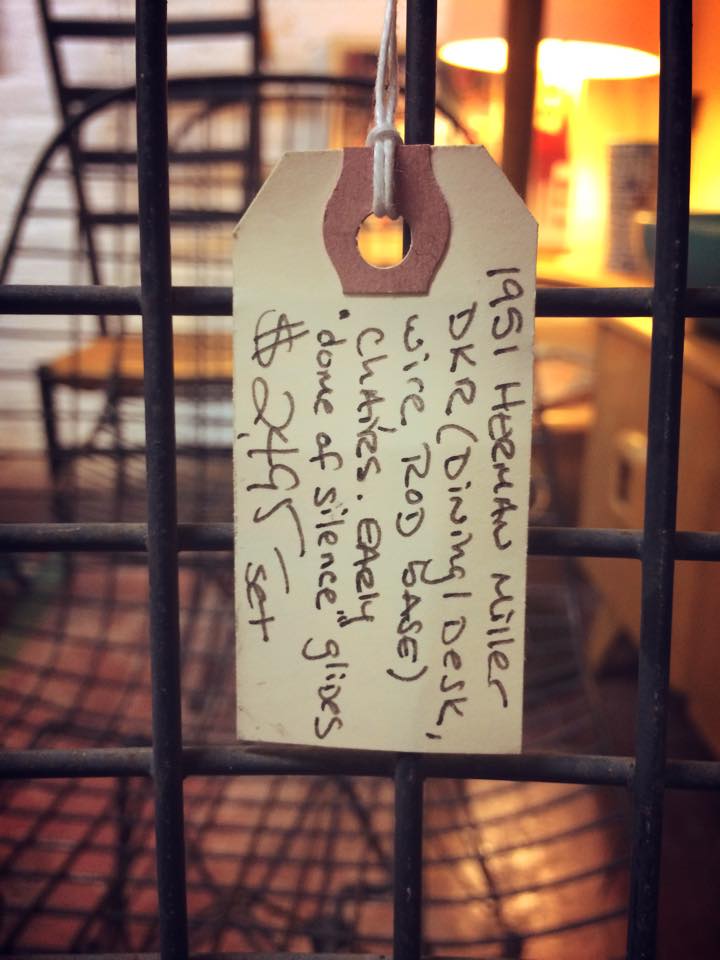 1951 Herman Miller
DKR (Dining / Desk,
wire, Rod base)
chaires. Early
"dome of silence" glides
$2,495 set